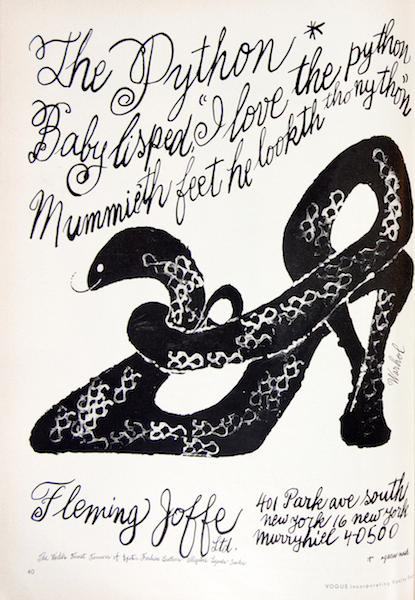 The Python *
Baby lisped, "I love the python
Mummieth feet he lookth tho nython"
Warhol
Fleming Joffe
Ltd.
401 Park ave south
new york 16 new york
murryhiel 40500
The World's Finest Tanners of
40
VOGUE incorporating